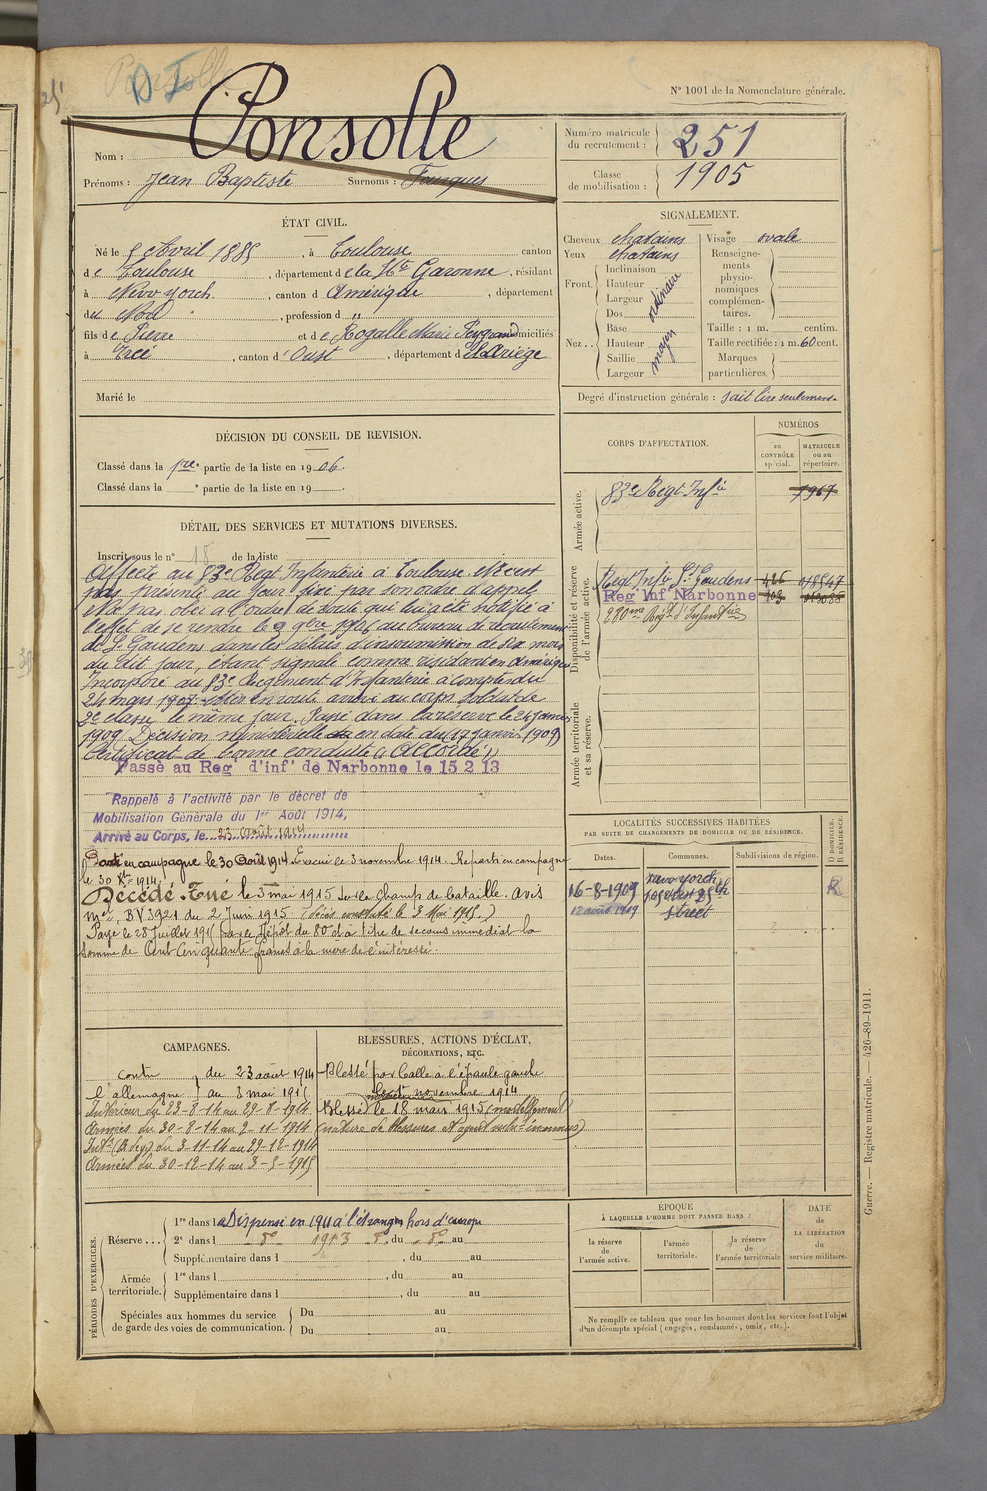 N° 1001 de la Nomenclature générale.
Ponsolle
Nom :
Prénoms : Jean Baptiste Surnoms :
Numéro matricule du recrutement : 251
Classe de mobilisation : 1905
ÉTAT CIVIL.
Né le 5 Avril 1885, à Toulouse canton
de Toulouse, département de la Hte Garonne, résidant
à New yorch, canton d Amérique, département
du Nord, profession d "
fils de Pierre et de Rogalle Marie domiciliés
à Ercé, canton d'Oust, département de l'Ariège
Marié le
SIGNALEMENT.
Cheveux chatains
Yeux chatains
Front. Inclinaison
Hauteur
Largeur
ordinaire
Nez .. Dos
Base
Hauteur
Saillie
Largeur
moyen
Visage ovale
Renseignements physionomiques complémentaires.
Taille : 1 m. centim.
Taille rectifiée : 1 m. 60 cent.
Marques particulières.
Degré d'instruction générale : sait lire seulement
DÉCISION DU CONSEIL DE REVISION.
Classé dans la 1re partie de la liste en 1906.
Classé dans la e partie de la liste en 19
DÉTAIL DES SERVICES ET MUTATIONS DIVERSES.
Inscrit sous le n° 18 de la liste
Affecté au 83e Regt Infanterie à Toulouse. N'est
pas présenté au jour fixé par son ordre d'appel
N'a pas obéi à l'ordre de route qui lui a été notifié à
l'effet de se rendre le 9 9bre 1906 au bureau de recrutement
de St Gaudens dans les délais d'insoumission de six mois
du dit jour, étant signalé comme résidant en Amérique
Incorporé au 83e Régiment d'Infanterie à compter du
24 mars 1907 en route arrivé au corps soldat de
2e classe le même jour. Passé dans la réserve le 24 janvier
1909 Décision ministérielle en date du 17 janvier 1909
Certificat de bonne conduite "Accordé"
Passé au Reg' d'inf' de Narbonne le 15 2 13
Rappelé à l'activité par le décret de
Mobilisation Générale du 1er Août 1914,
Arrivé au Corps, le 23 août 1914
Parti en campagne le 30 Août 1914. Evacué le 3 novembre 1914. Reparti en campagne
le 30 Xbre 1914.
Décédé. Tué le 3 mai 1915 sur le Champ de bataille. Avis
Mel, BV 3921 du 2 Juin 1915 (décès constaté le 3 Mai 1915)
Payé le 28 Juillet 1915 par le Dépôt du 80e à titre de secours immédiat la
somme de Cent Cinquante francs à la mère de l'intéressé.
CORPS D'AFFECTATION.
NUMÉROS
au CONTRÔLE spécial.
MATRICULE ou au répertoire.
Armée active.
83e Régt Infie 7967
Disponibilité et réserve de l'armée active.
Regt Infie St Gaudens 426
Reg' Inf' Narbonne
280me Régt d'Infanterie
Armée territoriale et sa réserve.
LOCALITÉS SUCCESSIVES HABITÉES
PAR SUITE DE CHANGEMENTS DE DOMICILE OU DE RÉSIDENCE.
Dates. Communes. Subdivisions de région. D DOMICILE. R RÉSIDENCE.
16-8-1909 New yorch R
12 août 1909 street
CAMPAGNES.
contre l'allemagne } du 23 août 1914
au 3 mai 1915
Intérieur du 23-8-14 au 29-8-1914
Armées du 30-8-14 au 2-11-1914
Intr du 3-11-14 au 29-12-1914
Armées du 30-12-14 au 3-5-1915
BLESSURES, ACTIONS D'ÉCLAT,
DÉCORATIONS, ETC.
Blessé par balle à l'épaule gauche
novembre 1914
Blessé le 18 mars 1915 (mortellement)
(nature de blessures et agent vulnt inconnus)
PÉRIODES D'EXERCICES.
Réserve ... 1re dans l Dispensé en 1911 à l'étranger hors d'europe
2e dans l do 1913 do du do au
Supplémentaire dans l , du au
Armée territoriale. 1re dans l , du au
Supplémentaire dans l , du au
Spéciales aux hommes du service de garde des voies de communication. Du au
Du au
ÉPOQUE
À LAQUELLE L'HOMME DOIT PASSER DANS :
la réserve de l'armée active.
l'armée territoriale.
la réserve de l'armée territoriale
DATE de LA LIBÉRATION du service militaire.
Ne remplir ce tableau que pour les hommes dont les services font l'objet
d'un décompte spécial (engagés, condamnés, omis, etc.).
Guerre. — Registre matricule. — 426-89-1911.